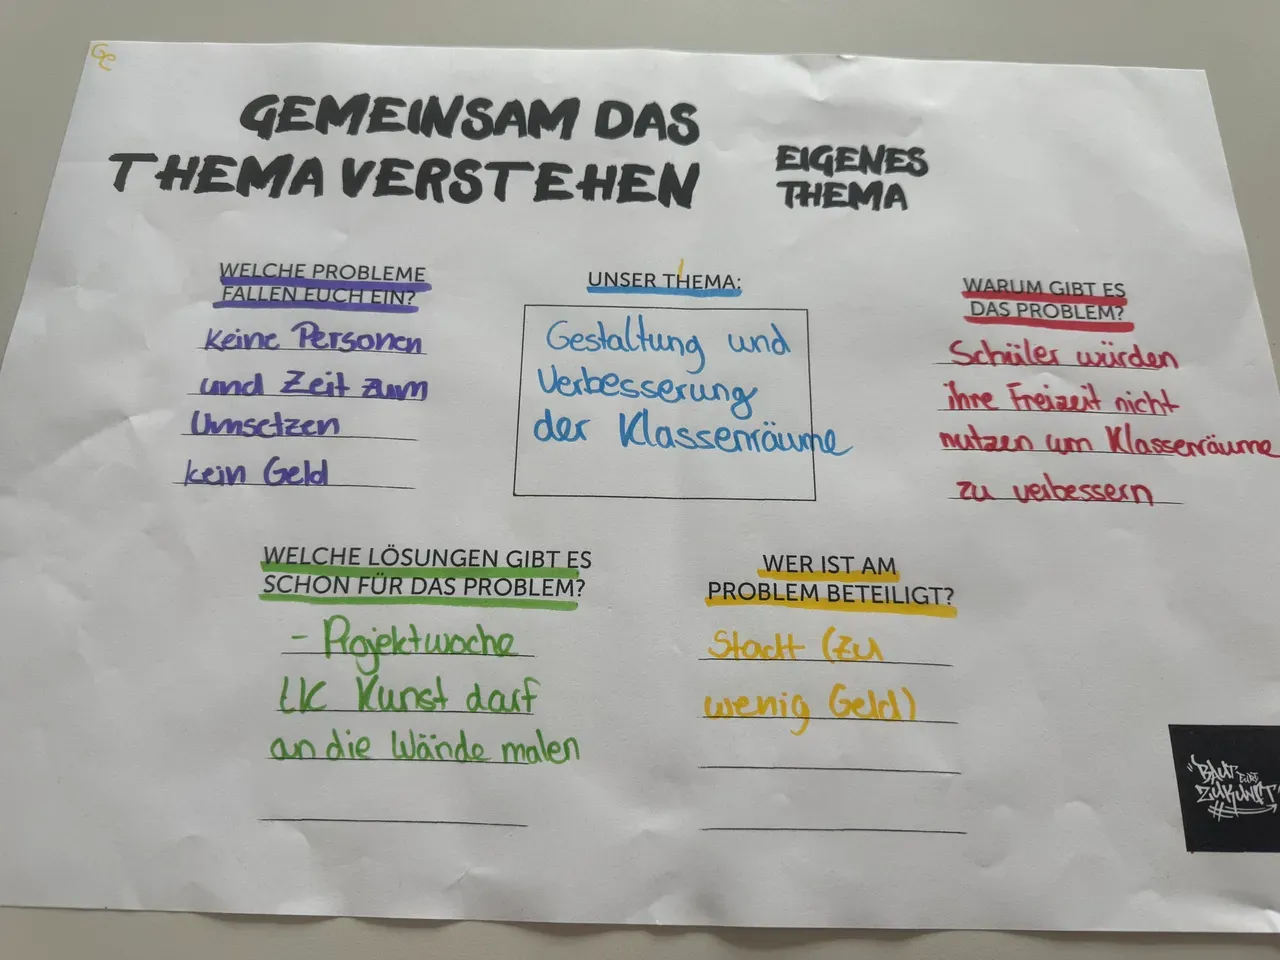 GC
GEMEINSAM DAS
THEMA VERSTEHEN
EIGENES
THEMA
WELCHE PROBLEME
FALLEN EUCH EIN?
Keine Personen
und Zeit zum
Umsetzen
kein Geld
UNSER THEMA:
Gestaltung und
Verbesserung
der Klassenräume
WARUM GIBT ES
DAS PROBLEM?
Schüler würden
ihre Freizeit nicht
nutzen um Klassenräume
zu verbessern
WELCHE LÖSUNGEN GIBT ES
SCHON FÜR DAS PROBLEM?
- Projektwoche
LK Kunst darf
an die Wände malen
WER IST AM
PROBLEM BETEILIGT?
Stadt (zu
wenig Geld)
"BAUT EURE
ZUKUNFT"